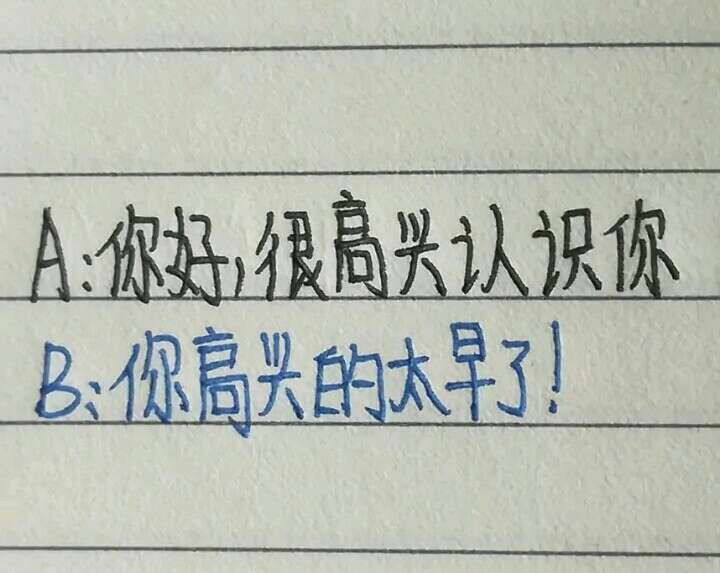 A:你好,很高兴认识你
B:你高兴的太早了!